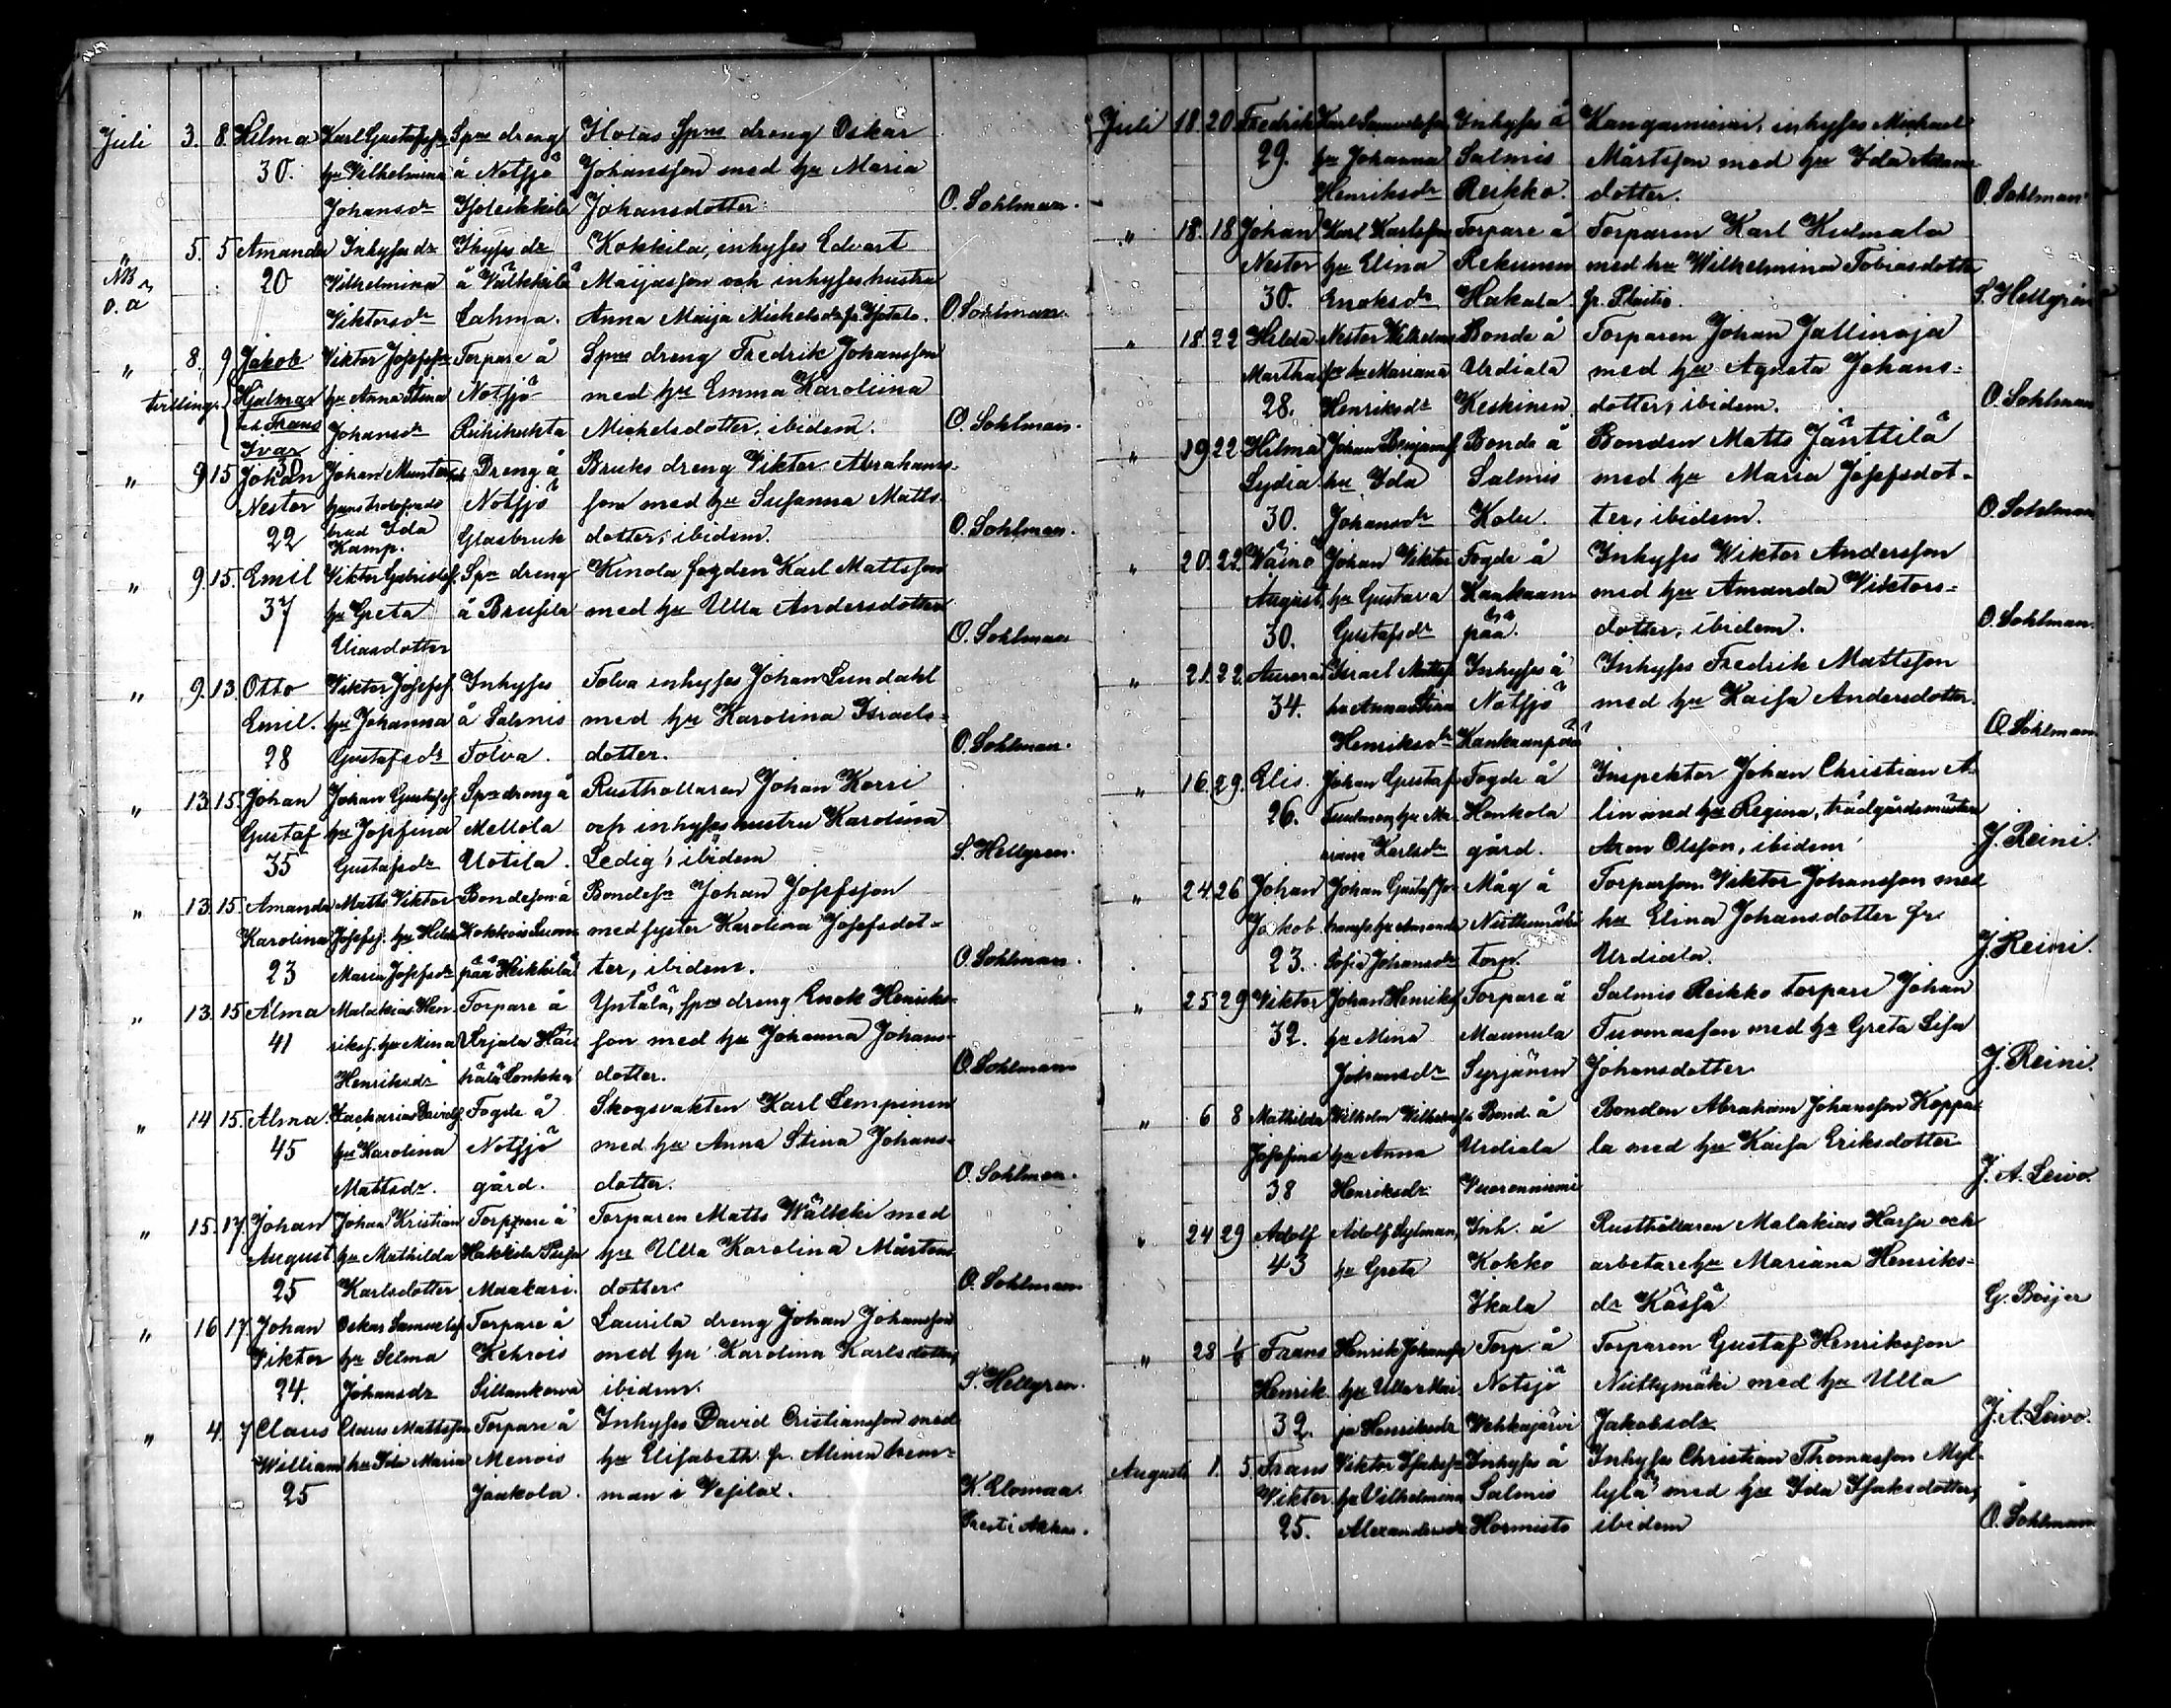 Juli 3. 8. Hilma Karl Gustafsson Spmdreng Holas Spms dreng Oskar
30. hu Vilhelmina å Notsjö Johansson med hu Maria
Johansdr Johansdotter. O. Sohlman.
" 5. 5 Amanda Inhyses dr Ihyses dr Kokkila, inhyses Edvart
NB 20 Vilhelmina å Välkkilä Maijasson och inhyseshustru
o. ä Viktorsdr Lahma. Anna Maija Mickelsdr fr O. Sohlman.
" 8. 9 Jakob Viktor Josefsson Torpare å Spms dreng Fredrik Johansson
tvilling. Hjalmar hu Anna Stina Notsjö med hu Emma Karolina
och Frans Johansdr Riihihuhta Mickelsdotter, ibidem. O. Sohlman.
Ivar
30
" 9 15 Johan Johan Dreng å Bruks dreng Viktor Abrahams-
Nestor Notsjö son med hu Susanna Matts-
22 brud Ida Kamp. Glasbruk dotter, ibidem. O. Sohlman.
" 9. 15. Emil Viktor Gabrielss. Spm dreng Kinola fogden Karl Mattsson
37 hu Greta å Brusila med hu Ulla Andersdotter
Uiasdotter O. Sohlman
" 9. 13. Otto Viktor Josefss. Inhyses Tolva inhyses Johan Lundahl
Emil. hu Johanna å Salmis med hu Karolina Israels-
28 Gustafsdr Tolva. dotter. O. Sohlman.
" 13. 15. Johan Johan Gustafss. Spmdreng å Rusthollaren Johan Korri
Gustaf hu Josefina Mellola och inhyseshustru Karolina
35 Gustafsdr Uotila. Ledig, ibidem S. Hellgren.
" 13. 15. Amanda Matts Viktor Bondeson å Bondeson Johan Josefsson
Karolina Josefss. hu Hilda Kokkois Suon med syster Karolina Josefsdot-
23 Maria Josefsdr pää Heikkilä ter, ibidem. O. Sohlman.
" 13. 15 Alma Malakias Hen Torpare å Yntälä, spms dreng Enok Henriks-
41 rikss. hu Mina Urjala son med hu Johanna Johans-
Henriksdr dotter. O. Sohlman
" 14 15. Alma. Zacharias Davidss. Fogde å Skogsvakten Karl Lempinen
45 hu Karolina Notsjö med hu Anna Stina Johans-
Mattsdr. gård. dotter. O. Sohlman.
" 15. 17. Johan Johan Kristian Torppare å Torparen Matts Wälkki med
August hu Mathilda Hakkila hu Ulla Karolina Mårtens
25 Karlsdotter Maakari. dotter. O. Sohlman
" 16 17. Johan Oskar Samuelss. Torpare å Laurila dreng Johan Johansson
Viktor hu Selma Kehrois med hu Karolina Karlsdotter,
24. Johansdr Sillankorva ibidem. S. Hellgren.
" 4. 7 Claes Claes Mattsson Torpare å Inhyses David Cristiansson med
William hu Ida Maria Menois hu Elisabeth fr.
25 Jaakola. man i Vesilax. K. Elomaa.
Prest i Akkas.
Juli 18. 20. Fredrik Karl Samuelsson Inhyses å Kangasniemi, inhyses Michael
29. hu Johanna Salmis Mårtsson med hu Ida Adams
Henriksdr Reikko. dotter. O. Sohlman.
" 18. 18 Johan Karl Karlsson Torpare å Torparen Karl Kulmala
Nestor hu Elina Rekunen med hu Wilhelmina Tobiasdotter
30. Enoksdr Hakala. fr. S. Hellgren
" 18. 22 Hilda Nestor Wilhelms Bonde å Torparen Johan Jallinoja
Martha hu Mariana Urdiala med hu Agneta Johans-
28. Henriksdr Keskinen dotter, ibidem. O. Sohlman
" 19. 22 Hilma Johan Benjamss. Bonde å Bonden Matts Jänttilä
Lydia hu Ida Salmis med hu Maria Josefsdot-
30. Johansdr Kolu. ter, ibidem. O. Sohlman
" 20. 22. Wäinö Johan Viktor Fogde å Inhyses Wiktor Andersson
August hu Gustava Kankaan med hu Amanda Viktors-
30. Gustafsdr pää. dotter, ibidem. O. Sohlman.
" 21. 22. Aurora Israel Mattss. Inhyses å Inhyses Fredrik Mattsson
34. hu Anna Stina Notsjö med hu Kaisa Andersdotter.
Henriksdr Kankaanpää O. Sohlman
" 16. 29. Elis Johan Gustaf Fogde å Inspektor Johan Christian A-
26. hu Ma Honkola lin med hu Regina, trädgårdsmästare
riana Karlsdr gård. Aron Olsson, ibidem J. Reini.
" 24. 26 Johan Johan Gustaf Jo- Måg å Torparson Viktor Johansson med
Jakob hanss. hu Amanda hu Elina Johansdotter fr.
23. Sofia Johansdr torp. Urdiala. J. Reini.
" 25 29 Viktor Johan Henrikss Torpare å Salmis Reikko torpare Johan
32. hu Mina Maunula Tuomasson med hu Greta Lisa
Johansdr Syrjänen Johansdotter J. Reini.
" 6 8 Mathilda Wilhelm Wilhelmss. Bond. å Bonden Abraham Johansson Koppa-
Josefina hu Anna Urdiala la med hu Kaisa Eriksdotter
38 Henriksdr Vuorenniemi J. A. Leivo
" 24 29 Adolf Adolf Sylman, Inh. å Rusthållaren Malakias Harsu och
43 hu Greta Kokko arbetare hu Mariana Henriks-
Ikala dr Kässä G. Böijer
" 28 1/8 Frans Henrik Johansson Torp. å Torparen Gustaf Henriksson
Henrik hu Ulla Mai Notsjö Niittymäki med hu Ulla
32. ja Henriksdr Vehkajärvi Jakobsdr J. A. Leivo.
Augusti 1. 5. Frans Viktor Isakss. Inhyses å Inhyses Christian Thomasson Myl-
Viktor hu Vilhelmina Salmis lylä med hu Ida Isaksdotter,
25. Alexandersdr Hormisto ibidem O. Sohlman